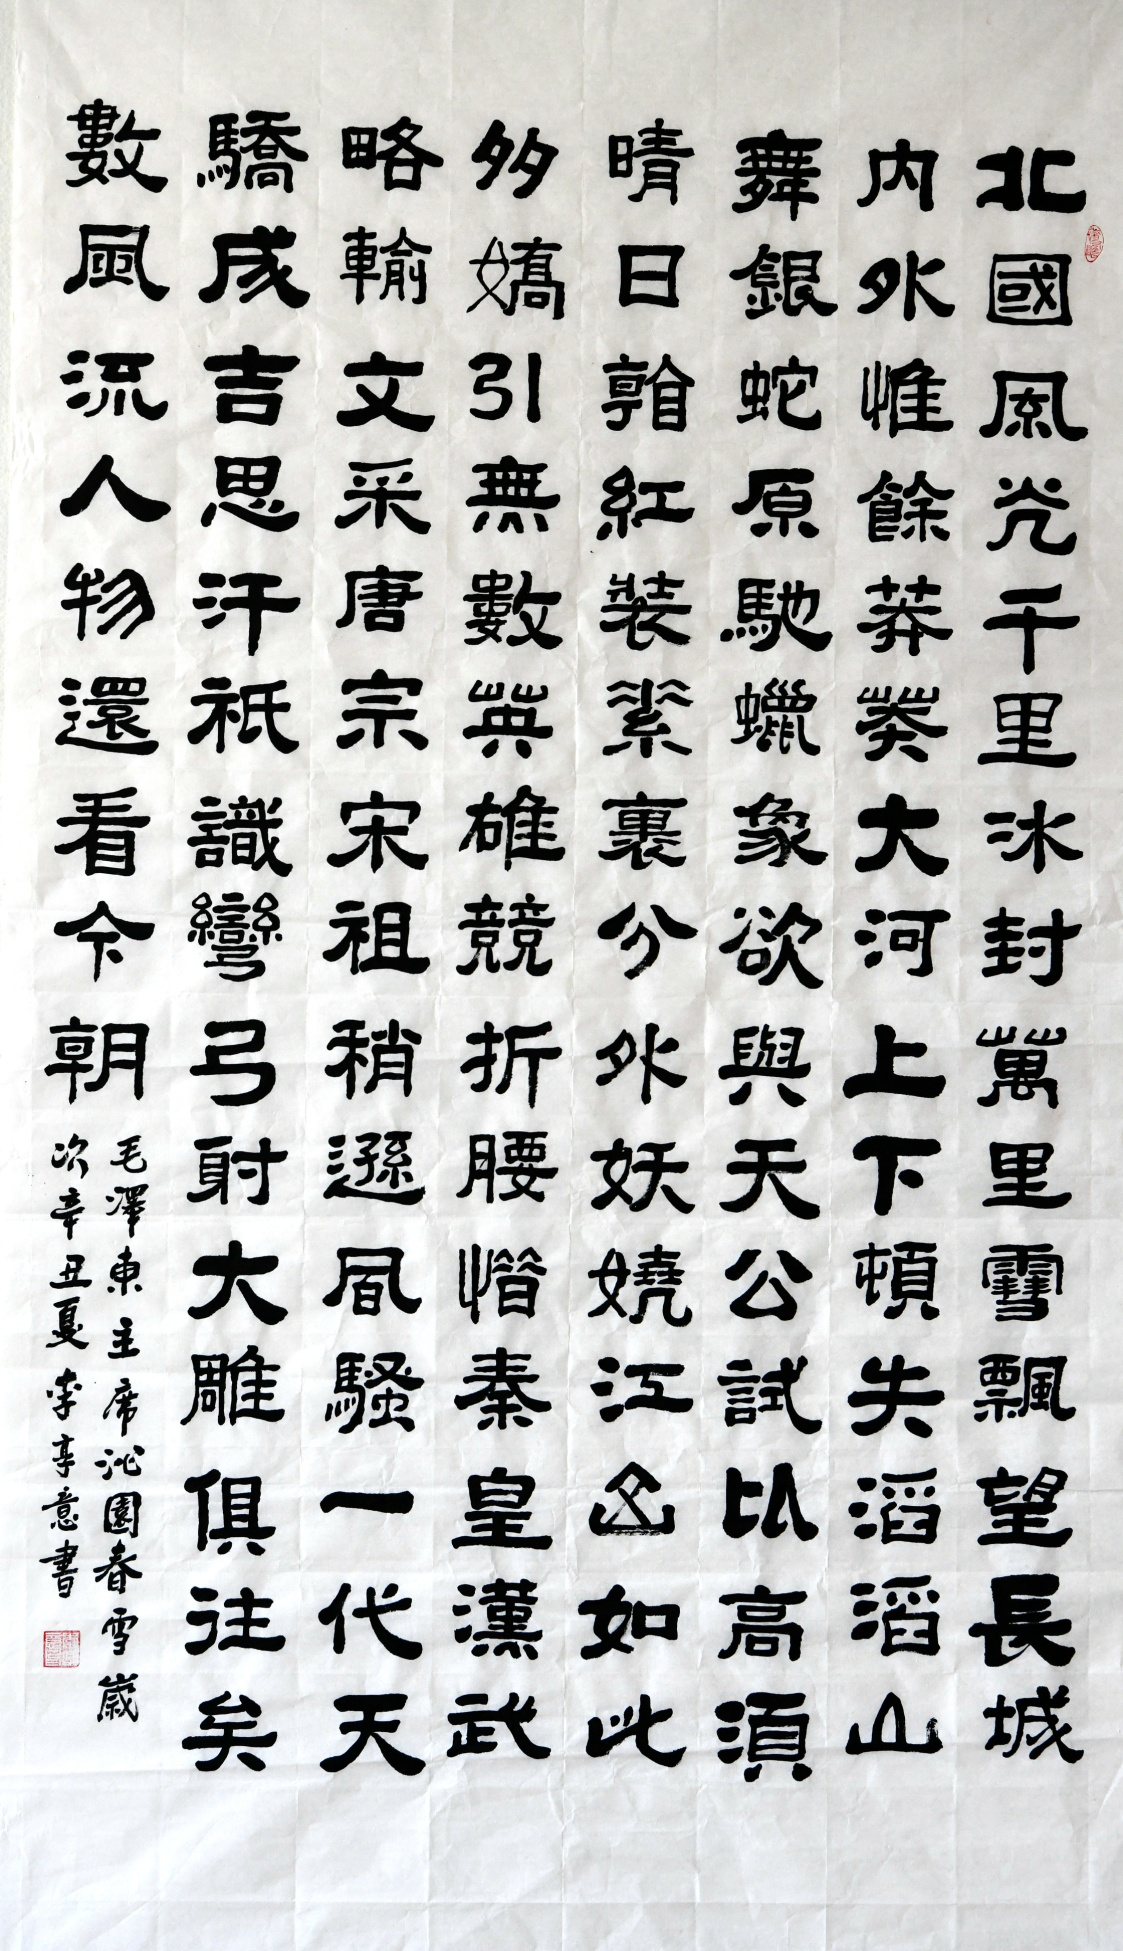 北國風光千里冰封萬里雪飄望長城
內外惟餘莽莽大河上下頓失滔滔山
舞銀蛇原馳蠟象欲與天公試比高須
晴日看紅裝素裹分外妖嬈江山如此
多嬌引無數英雄競折腰惜秦皇漢武
略輸文采唐宗宋祖稍遜風騷一代天
驕成吉思汗祇識彎弓射大雕俱往矣
數風流人物還看今朝
毛澤東主席沁園春雪歲
次辛丑夏李亭意書